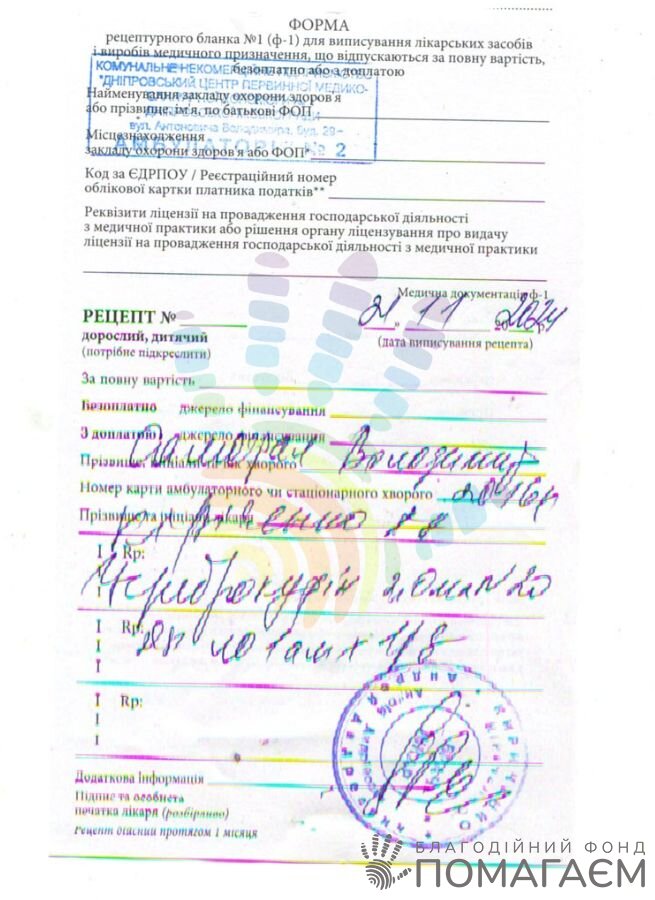 ФОРМА
рецептурного бланка №1 (ф-1) для виписування лікарських засобів
і виробів медичного призначення, що відпускаються за повну вартість,
безоплатно або з доплатою
КОМУНАЛЬНЕ НЕКОМЕРЦ
"ДНІПРОВСЬКИЙ ЦЕНТР ПЕРВИННОЇ МЕДИКО-
Найменування закладу охорони здоров'я
або прізвище, ім'я, по батькові ФОП
вул. Антоновича Володимира, буд. 29
Місцезнаходження
закладу охорони здоров'я або ФОП*
АМБУЛАТОРІЯ № 2
Код за ЄДРПОУ / Реєстраційний номер
облікової картки платника податків**
Реквізити ліцензії на провадження господарської діяльності
з медичної практики або рішення органу ліцензування про видачу
ліцензії на провадження господарської діяльності з медичної практики
Медична документація ф-1
РЕЦЕПТ № 21 11 2024 р.
дорослий, дитячий
(потрібне підкреслити)
(дата виписування рецепта)
За повну вартість
Безоплатно джерело фінансування
З доплатою джерело фінансування
Прізвище, ініціали та вік хворого Володимир
Номер карти амбулаторного чи стаціонарного хворого
Прізвище та ініціали лікаря
Rp:
Rp:
Rp:
Додаткова інформація
Підпис та особиста
печатка лікаря (розбірливо)
Рецепт дійсний протягом 1 місяця
БЛАГОДІЙНИЙ ФОНД
ПОМАГАЄМ